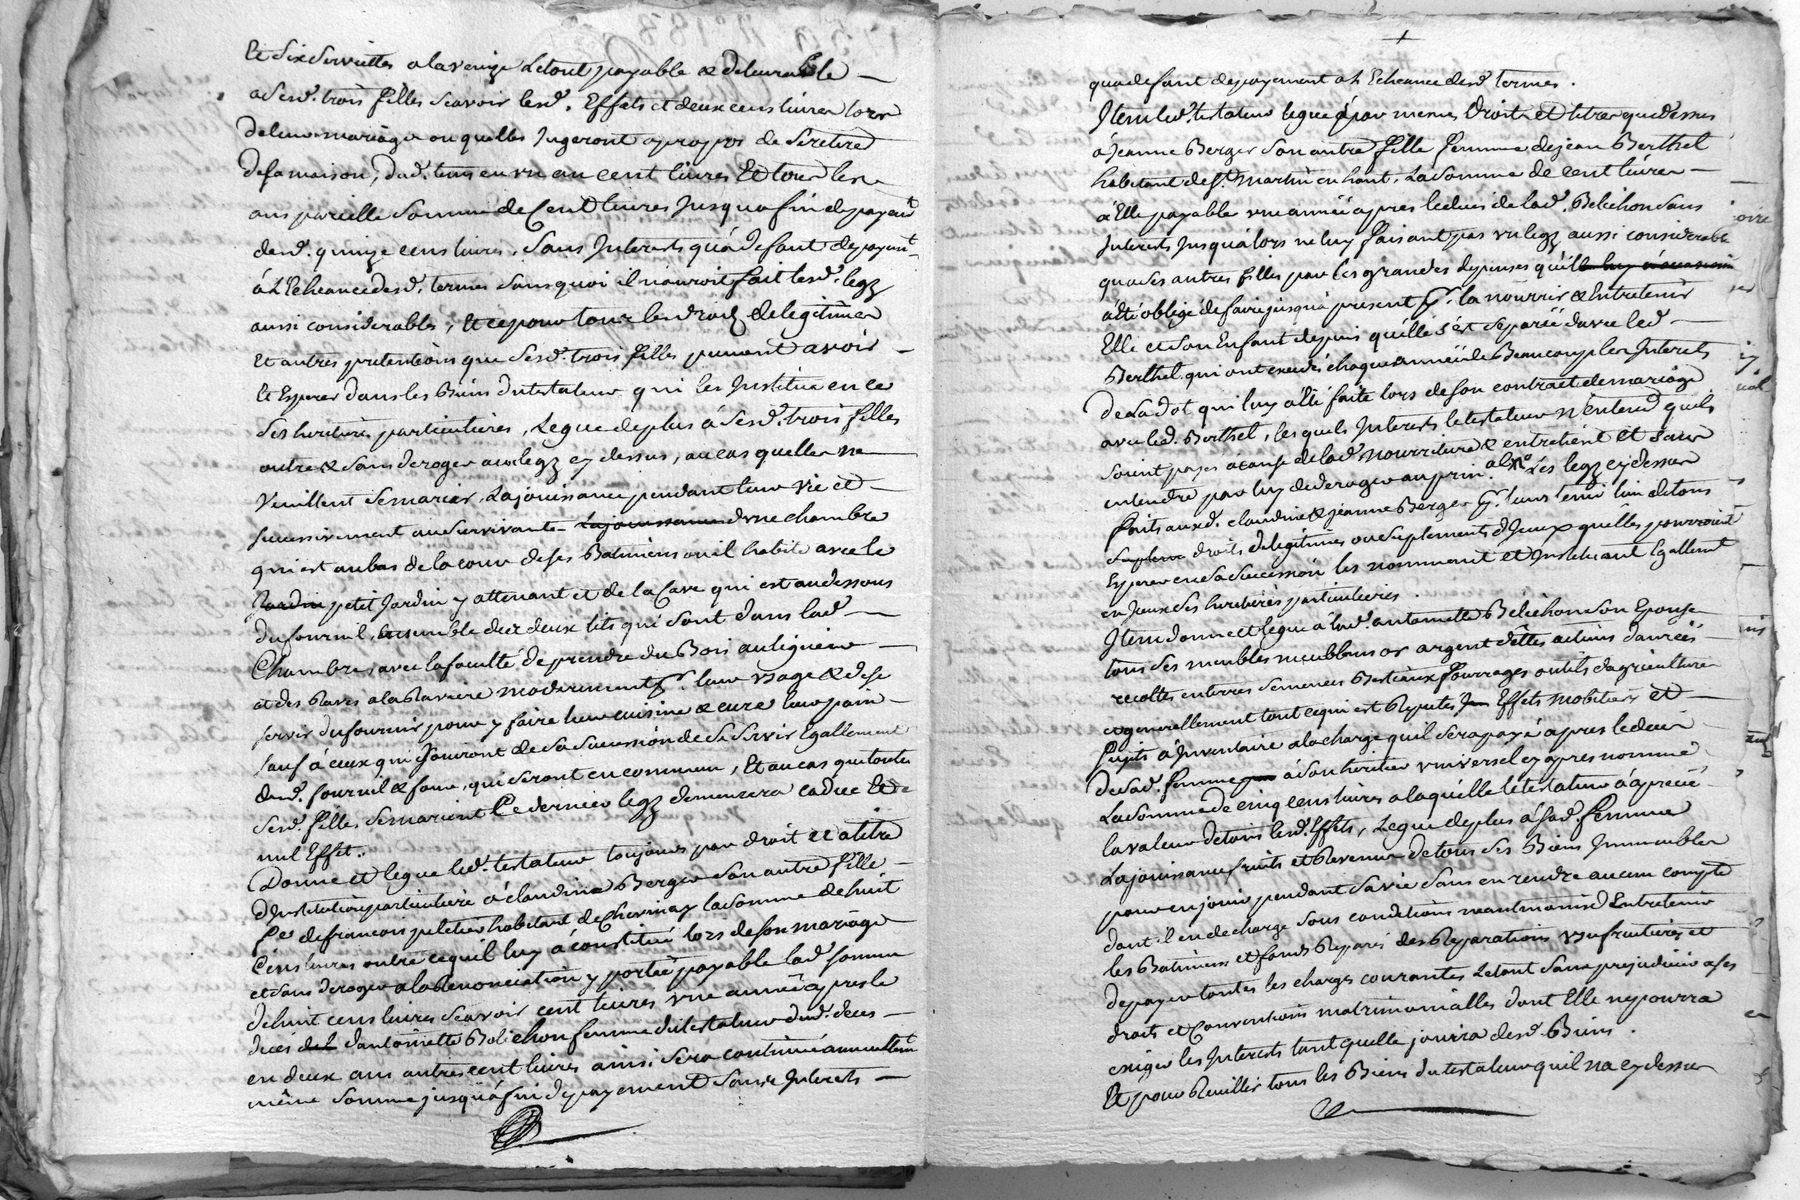 Et six serviettes a la venize Letout payable & delivrable
a sesd. trois filles scavoir lesd. Effets et deux cens livres lors
de leurs mariage ou quelles Jugeront apropos de se retirer
de sa maison, dud. tems en un an cent livres Et tous les
ans pareille somme de Cent livres Jusqua fin de payemt
desd. quinze cens livres, sans Interests qu'á defaut de payemt
á L'Echeance desd. termes sans quoi il n'auroit fait lesd. legz
aussi considerables, Et ce pour tous les droits de legitimes
Et autres pretentions que sesd. trois filles peuvent avoir
Et Esperer dans les Biens du testateur qui les Institue en ce
ses heritieres particulieres, Legue de plus á sesd. trois filles
outre & sans deroger aux legz cy dessus, au cas quelles ne
veuillent se marier, La jouissance pendant leur vie et
successivement au survivante d'une chambre
qui est au bas de la cour de ses Batimens ou il habite avec le
petit Jardin y attenant et de la Cave qui est au dessous
du fournil, Ensemble des deux lits qui sont dans lad.
Chambre, avec la faculté de prendre du Bois au ligneiro
et des Raves a la Raviere moderement pr. leur usage & de se
servir du fournil pour y faire leur cuisine & cuire leur pain
sauf á ceux qui Jouiront de sa succession de se servir Egallement
dud. fournil & four, qui seront en commun, Et au cas que toutes
sesd. filles se marient Ce dernier legz demeurera caduc Et de
nul Effet.
Donne et legue led. testateur toujours par droit et a titre
d'Institution particuliere á claudine Berger son autre fille
fe. de francois peletier habitant de Chevinay la somme de huit
Cens livres outre ce quil luy á constitué lors de son mariage
et sans deroger a la Renonciation y portée payable lad. somme
de huit cens livres scavoir cent livres une année apres le
deces d'antoinette Belichon femme du testateur dud. deces
en deux ans autres cent livres ainsi sera continué annuellemt
même somme jusqu'á fin de payement sans Interests
qua defaut de payement a L'Echeance desd. termes.
Item led. testateur legue par mêmes Droits et titres que dessus
á Jeanne Berger son autre fille femme de jean Berthet
habitant de St. Martin en haut, La somme de cent livres
á Elle payable une année apres le deces de lad. Belichon sans
Interests Jusqu'alors ne luy faisant pas un legz aussi considerable
qua ses autres filles par les grandes depenses qu'il
a été obligé de faire jusqu'a present pr. la nourrir & Entretenir
Elle et son Enfant depuis qu'elle s'est separée d'avec led.
Berthet qui ont excedé chaque année de Beaucoup les Interets
de la dot qui luy a été faite lors de son contract de mariage
avec led. Berthet, lesquels Interests le testateur n'entend quils
soient payés a cause de lad. nourriture & entretient et sans
entendre par luy de deroger au prin.al Les legz cy dessus
faits auxd. claudine & jeanne Berger pr. leurs tenir lieu de tous
droits de legitimes ou suplements d'Jceux qu'elles pourroient
Esperer en sa succession les nommant et Instituant Egallemt
en Jceux ses heritieres particulieres.
Item donne et legue á lad. antoinette Belichon son Epouse
tous ses meubles meublans or argent dettes actives danrées
recoltes en terres semences Bestiaux fourrages outils d'agriculture
et generallement tout ce qui est Reputés Effets mobiliers et
sujets a Inventaire a la charge quil sera payé apres le deces
de sad. femme á son heritier universel cy apres nommé
La somme de cinq cens livres a laquelle le testateur á aprecié
la valeur de tous lesd. Effets, Legue de plus á sad. femme
La jouissance fruits et Revenus de tous ses Biens Immeubles
pour en jouir pendant sa vie sans en rendre aucun compte
dont il en decharge sous conditions neantmoins d'Entretenir
les Batimens et fonds Reparés des Reparations usufruitieres et
de payer toutes les charges courantes Letout sans prejudicier a ses
droits et Conventions matrimonialles dont Elle ne pourra
exiger les Interests tant quelle jouira desd. Biens.
Et pour Recuillir tous les Biens du testateur quil na cy dessus